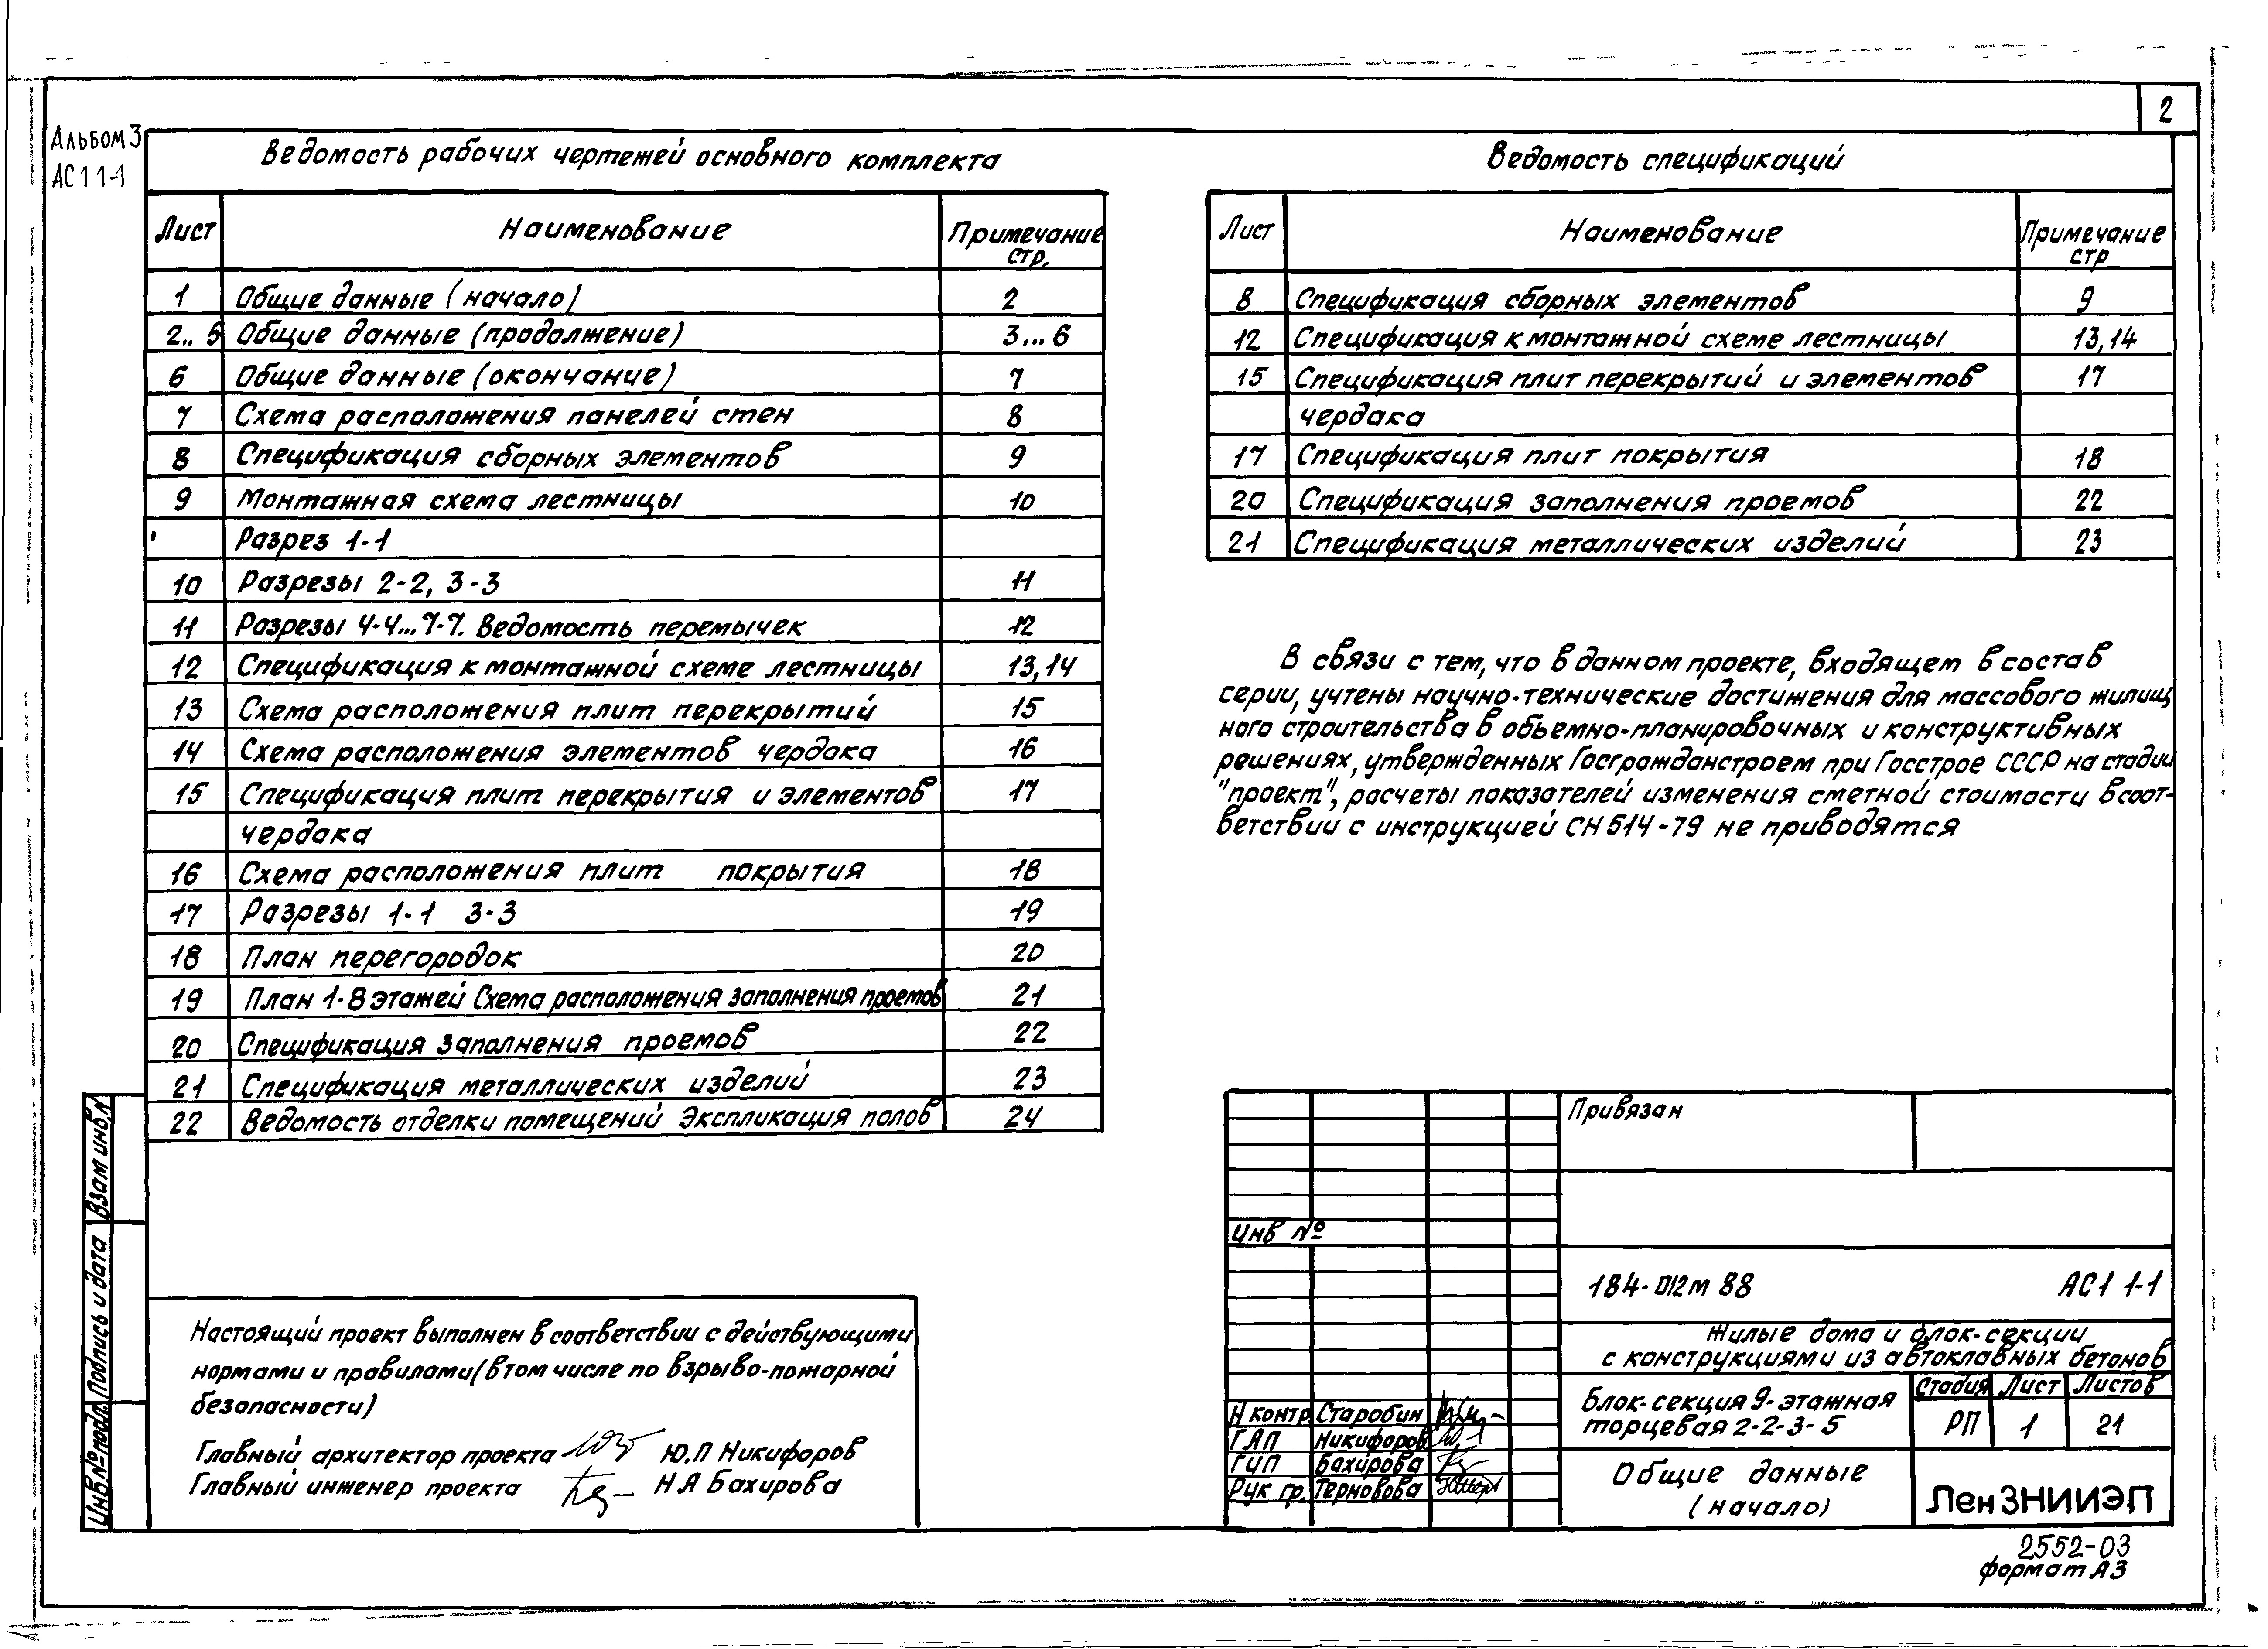 2
Альбом 3
АС1 1-1
Ведомость рабочих чертежей основного комплекта
Лист Наименование Примечание стр.
1 Общие данные (начало) 2
2.. 5 Общие данные (продолжение) 3...6
6 Общие данные (окончание) 7
7 Схема расположения панелей стен 8
8 Спецификация сборных элементов 9
9 Монтажная схема лестницы 10
Разрез 1-1
10 Разрезы 2-2, 3-3 11
11 Разрезы 4-4...7-7. Ведомость перемычек 12
12 Спецификация к монтажной схеме лестницы 13,14
13 Схема расположения плит перекрытий 15
14 Схема расположения элементов чердака 16
15 Спецификация плит перекрытия и элементов 17
чердака
16 Схема расположения плит покрытия 18
17 Разрезы 1-1 3-3 19
18 План перегородок 20
19 План 1-8 этажей Схема расположения заполнения проемов 21
20 Спецификация заполнения проемов 22
21 Спецификация металлических изделий 23
22 Ведомость отделки помещений Экспликация полов 24
Ведомость спецификаций
Лист Наименование Примечание стр
8 Спецификация сборных элементов 9
12 Спецификация к монтажной схеме лестницы 13,14
15 Спецификация плит перекрытий и элементов 17
чердака
17 Спецификация плит покрытия 18
20 Спецификация заполнения проемов 22
21 Спецификация металлических изделий 23
В связи с тем, что в данном проекте, входящем в состав
серии, учтены научно-технические достижения для массового жилищ
ного строительства в объемно-планировочных и конструктивных
решениях, утвержденных Госгражданстроем при Госстрое СССР на стадии
"проект", расчеты показателей изменения сметной стоимости в соот-
ветствии с инструкцией СН 514-79 не приводятся
Взам инв.N
Подпись и дата
Инв.№ подл.
Настоящий проект выполнен в соответствии с действующими
нормами и правилами (в том числе по взрыво-пожарной
безопасности)
Главный архитектор проекта Ю.П Никифоров
Главный инженер проекта Н А Бахирова
Привязан
Инв №
184-012м 88 АС1 1-1
Жилые дома и блок-секции
с конструкциями из автоклавных бетонов
Н контр Старобин
ГАП Никифоров
ГИП Бахирова
Рук гр. Терновова
Блок-секция 9-этажная
торцевая 2-2-3-5
Стадия Лист Листов
РП 1 21
Общие данные
(начало)
ЛенЗНИИЭП
2552-03
формат А3